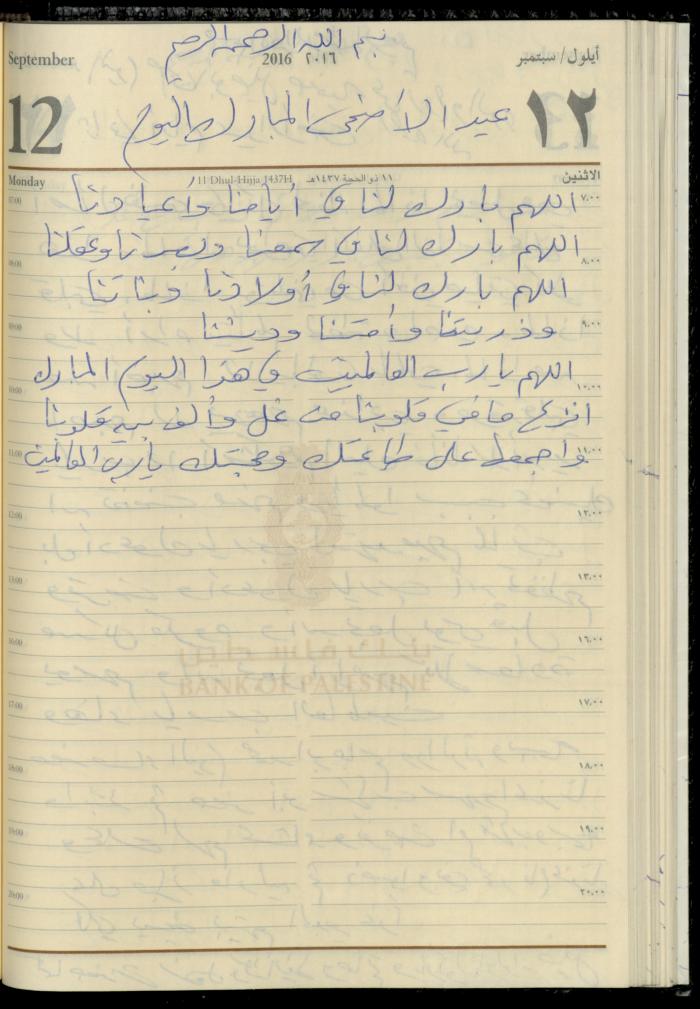 بسم الله الرحمن الرحيم
September
2016 ٢٠١٦
أيلول/سبتمبر
12
عيد الأضحى المبارك اليوم
١٢
Monday
11 Dhul-Hijja 1437H ١١ ذو الحجة ١٤٣٧هـ
الاثنين
07:00 ٧،٠٠
اللهم بارك لنا في أيامنا وأعيادنا
اللهم بارك لنا في سمعنا وبصرنا وعقلنا
08:00 ٨،٠٠
اللهم بارك لنا في أولادنا وبناتنا
09:00 ٩،٠٠
وذريتنا وأمتنا وديننا
اللهم يا رب العالمين في هذا اليوم المبارك
10:00 ١٠،٠٠
انزع ما في قلوبنا من غل وألف بين قلوبنا
11:00 ١١،٠٠
واجمعنا على طاعتك ومحبتك يا رب العالمين
12:00 ١٢،٠٠
13:00 ١٣،٠٠
16:00 ١٦،٠٠
بنك فلسطين
BANK OF PALESTINE
17:00 ١٧،٠٠
18:00 ١٨،٠٠
19:00 ١٩،٠٠
20:00 ٢٠،٠٠